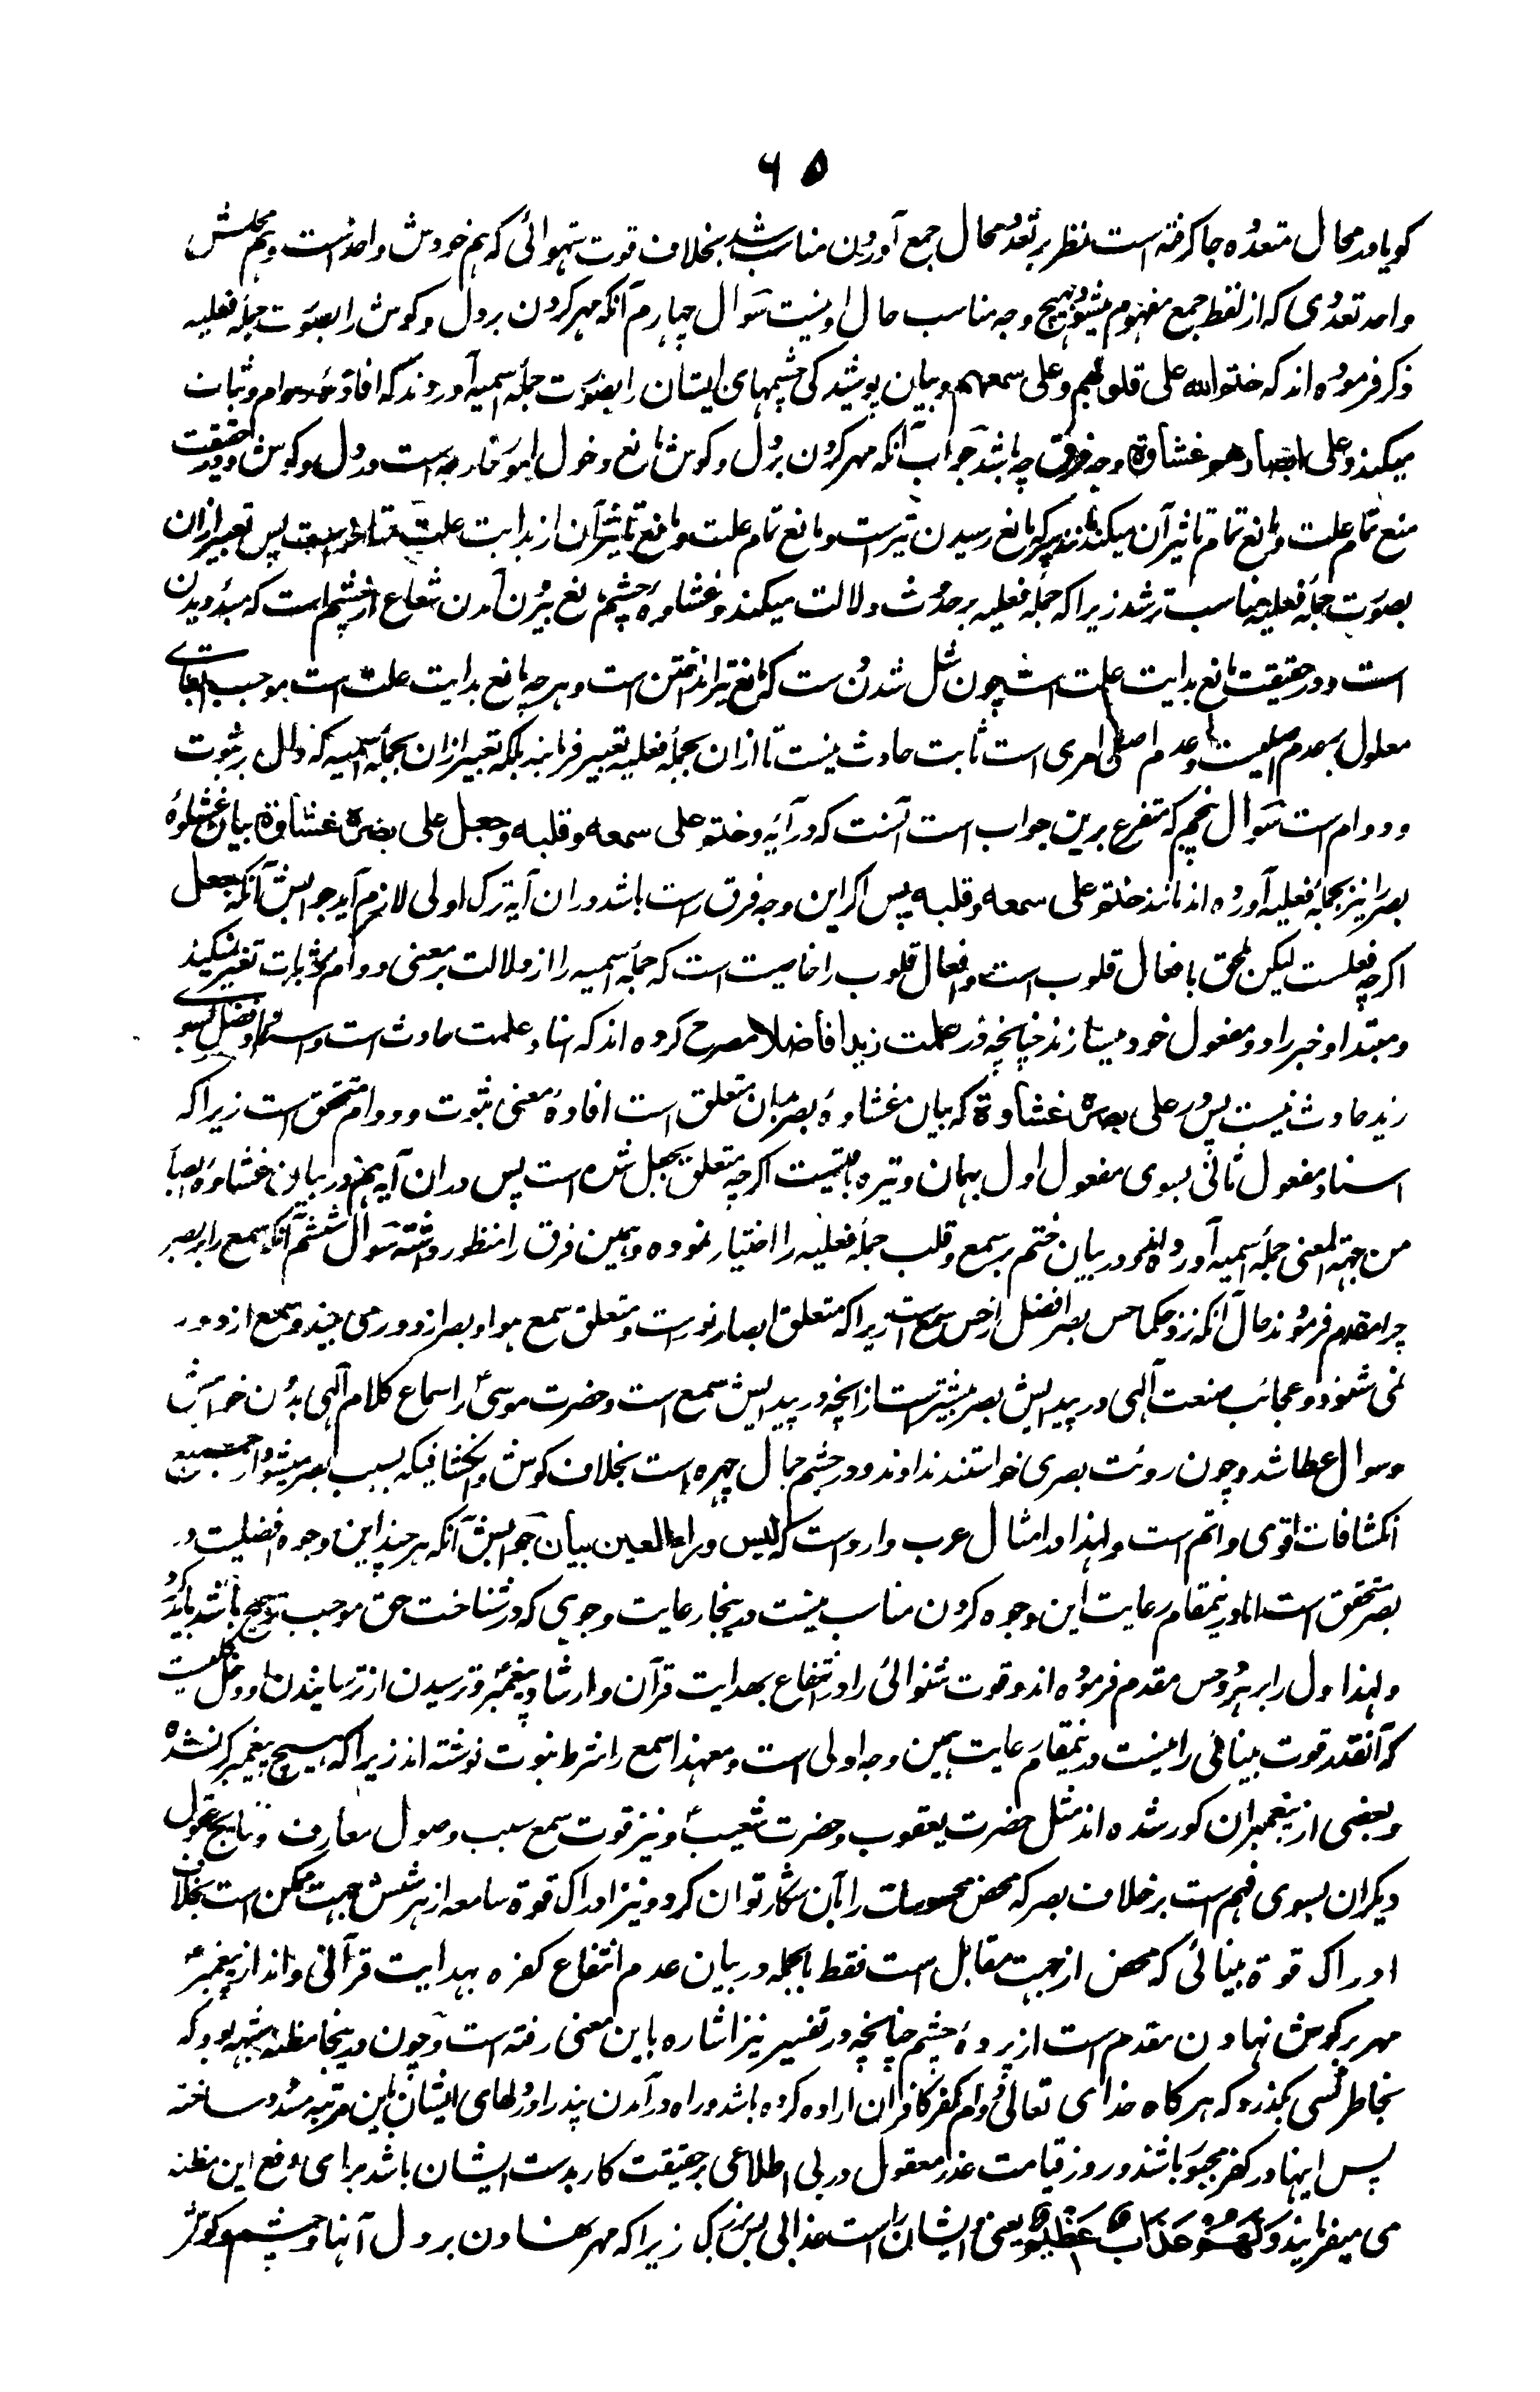 ۶۵
کویا در محال متعدده جا کرفته است نظر بر تعدد محال جمع آوردن مناسب شد بخلاف قوت شهوائی که هم خودش واحد است وهم محلش
واحد تعددی که از لفظ جمع مفهوم میشود بهیچ وجه مناسب حال او نیست سوال چهارم آنکه مهر کردن بر دل و کوش را بصورت جملهٔ فعلیه
ذکر فرموده اند که ختم الله علی قلوبهم وعلی سمعهم وبیان پوشیدکی چشمهای ایشان را بصورت جملهٔ اسمیه آوردند که افادهٔ دوام وثبات
میکند وعلی ابصارهم غشاوة وجه فرق چه باشد جواب آنکه مهر کردن بر دل و کوش مانع دخول امور خارجه است در دل و کوش ودر حقیقت
منع تمام علت ومانع تمام تاثیر آن میکند مانند سپر که مانع رسیدن تیر است ومانع تمام علت ومانع تاثیر آن از بدایت علت متاخر است پس تعبیر ازان
بصورت جملهٔ فعلیه مناسب تر شد زیرا که جملهٔ فعلیه بر حدوث دلالت میکند وغشاوهٔ چشم مانع بیرون آمدن شعاع از چشم است که مبدء دیدن
است ودر حقیقت مانع بدایت علت است چون شل شدن دست که مانع تیر انداختن است وهر چه مانع بدایت علت است موجب ابقای
معلول بعدم اصلیست وعدم اصلی امری است ثابت حادث نیست تا ازان بجملهٔ فعلیه تعبیر فرمایند بلکه تعبیر ازان بجملهٔ اسمیه که دال بر ثبوت
ودوام است سوال پنجم که متفرع برین جواب است آنست که در آیهٔ وختم علی سمعه وقلبه وجعل علی بصره غشاوة بیان غشاوهٔ
بصر را نیز بجملهٔ فعلیه آورده اند مانند ختم علی سمعه وقلبه پس اکر این وجه فرق راست باشد دران آیه ترک اولی لازم آید جوابش آنکه جعل
اکرچه فعلست لیکن ملحق بافعال قلوب است وافعال قلوب را خاصیت است که جملهٔ اسمیه را از دلالت بر معنی دوام وثبات تغییر نمیکند
ومبتدا وخبر را دو مفعول خود میسازند چنانچه در علمت زیدا فاضلا مصرح کرده اند که اسناد علمت حادث است واسناد فضل بسوی
زید حادث نیست پس در علی بصره غشاوة که بیان غشاوهٔ بصر بان متعلق است افادهٔ معنی ثبوت ودوام متحقق است زیرا که
اسناد مفعول ثانی بسوی مفعول اول بهمان وتیره باقیست اکرچه متعلق بجعل شده است پس دران آیه هم در بیان غشاوهٔ ابصار
من جهة المعنی جملهٔ اسمیه آورده اند ودر بیان ختم بر سمع وقلب جملهٔ فعلیه را اختیار نموده وهمین فرق را منظور داشته سوال ششم آنکه سمع را بر بصر
چرا مقدم فرمودند حال آنکه نزد حکما حس بصر افضل از حس سمع است زیرا که متعلق ابصار نور است ومتعلق سمع هوا وبصر از دور می بیند وسمع از دور
نمی شنود وعجائب صنعت آلهی در پیدایش بصر بیشتر است از انچه در پیدایش سمع است وحضرت موسیٰ را سماع کلام آلهی بدون خواهش
وسوال عطا شد وچون روئت بصری خواستند ندادند ودر چشم جمال چهره است بخلاف کوش وانکشافیکه بسبب بصر میشود از جمیع
انکشافات اقوی واتم است ولهذا در امثال عرب وارد است که لیس وراء العین بیان جوابش آنکه هر چند این وجوه افضلیت در
بصر متحقق است اما درینمقام رعایت این وجوه کردن مناسب نیست درینجا رعایت وجوهی که در شناخت حق موجب ترجیح باشد باید کرد
ولهذا دل را بر هر دو حس مقدم فرموده اند وقوت شنوائی را در انتفاع بهدایت قرآن وارشاد پیغمبر وترسیدن از ترسانیدن او دخلیست
که آنقدر قوت بینائی را نیست درینمقام رعایت همین وجه اولی است ومعهذا سمع را شرط نبوت نوشته اند زیرا که هیچ پیغمبر کر نشده
وبعضی از پیغمبران کور شده اند مثل حضرت یعقوب وحضرت شعیب ونیز قوت سمع سبب وصول معارف ونتایج عقول
دیکران بسوی فهم است برخلاف بصر که محض محسوسات را بآن شکار توان کرد ونیز ادراک قوة سامعه از هر شش جهت ممکن است بخلاف
ادراک قوة بینائی که محض از جهت مقابل است فقط بالجمله در بیان عدم انتفاع کفره بهدایت قرآنی وانذار پیغمبر
مهر بر کوش نهادن مقدم است از پردهٔ چشم چنانچه در تفسیر نیز اشاره باین معنی رفته است وچون درینجا مظنهٔ شبهه بود که
بخاطر کسی بکذرد که هر کاه خدای تعالیٰ دوام کفر کافران اراده کرده باشد وراه در آمدن پند را در دلهای ایشان باین مرتبه مسدود ساخته
پس اینها در کفر مجبور باشند و روز قیامت عذر معقول در بی اطلاعی بر حقیقت کار بدست ایشان باشد برای دفع این مظنه
می میفرمایند وَلَهُمْ عَذَابٌ عَظِيمٌ یعنی و ایشان راست عذابی بس بزرک زیرا که مهر نهادن بر دل آنها وچشم وکوش